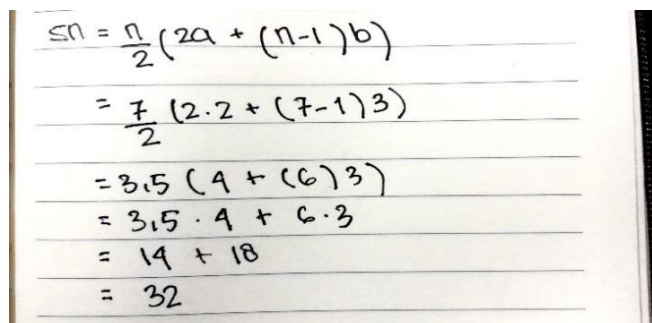 Sn = n/2 (2a + (n-1)b)
= 7/2 (2.2 + (7-1)3)
= 3,5 (4 + (6)3)
= 3,5 . 4 + 6.3
= 14 + 18
= 32